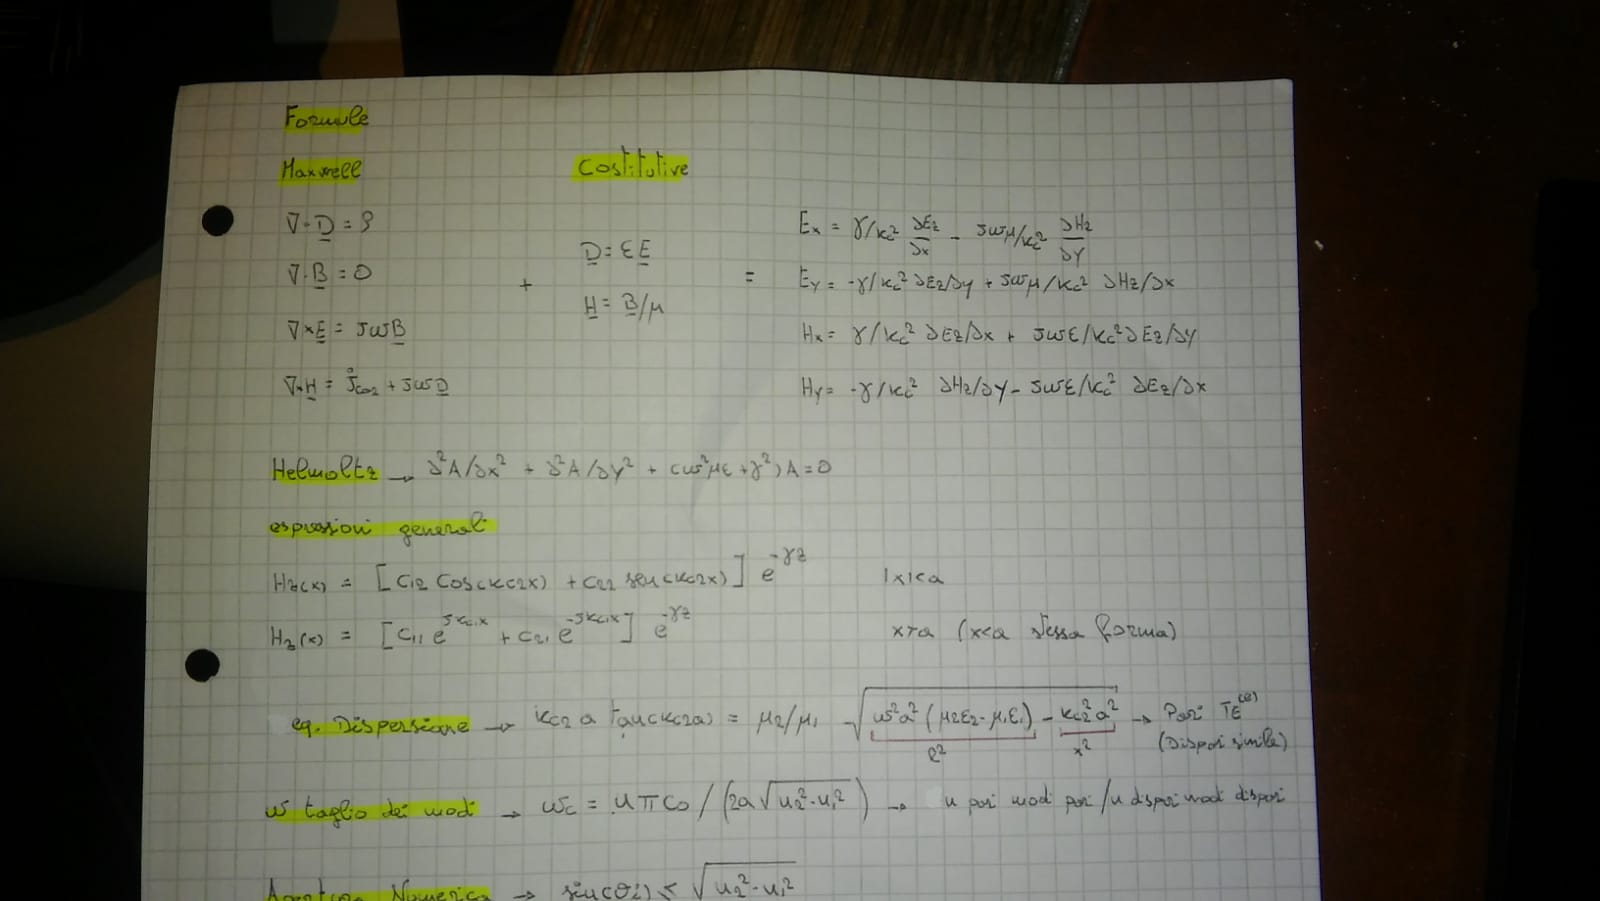 Formule
Maxwell
Costitutive
∇·D = ρ
∇·B = 0
∇×E = JωB
∇×H = J̊co2 + JωD
+
D = εE
H = B/μ
=
Ex = γ/kc² ∂Ez/∂x - Jωμ/kc² ∂Hz/∂y
Ey = -γ/kc² ∂Ez/∂y + Jωμ/kc² ∂Hz/∂x
Hx = γ/kc² ∂Ez/∂x + Jωε/kc² ∂Ez/∂y
Hy = -γ/kc² ∂Hz/∂y - Jωε/kc² ∂Ez/∂x
Helmoltz → ∂²A/∂x² + ∂²A/∂y² + (ω²με + γ²)A = 0
espressioni generali
Hz(x) = [C12 cos(kc2x) + C22 sen(kc2x)] e^-γz |x|<a
Hz(x) = [C11 e^Jkc1x + C21 e^-Jkc1x] e^-γz x>a (x<a stessa forma)
eq. Dispersione → kc2 a tan(kc2a) = μ2/μ1 √(ω²a²(μ2ε2 - μ1ε1) - kc2²a²) → Pari TE^(z)
e² x² (Dispari simile)
ω taglio dei modi → ωc = nπC0/(2a√(n2² - n1²)) → n pari modi pari/n dispari modi dispari
Apertura Numerica → sin(θi) < √(n2² - n1²)